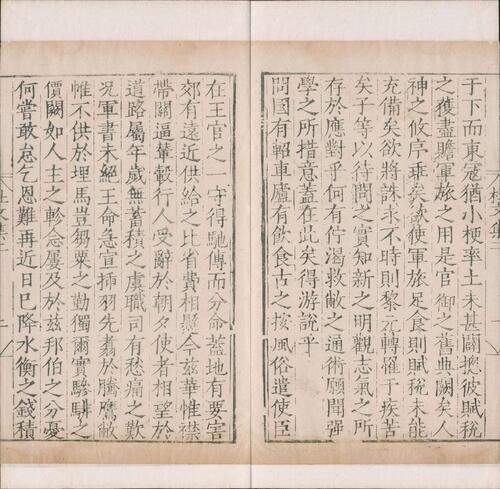 于下而東寇猶小梗率土未甚闢摠彼賦稅
之獲盡贍軍旅之用是官御之舊典闕矣人
神之攸序乖矣欲使軍旅足食則賦稅未能
充備矣欲將誅求不時則黎元轉罹于疾苦
矣子等以待問之實知新之明觀志氣之所
存於應對乎何有佇渴救敝之通術願聞強
學之所措意蓋在此矣得游說乎
問國有軺車廬有飲食古之按風俗遣使臣
在王官之一守得馳傳而分命蓋地有要害
郊有遠近供給之比省費相懸今茲華惟襟
帶關逼輦轂行人受辭於朝夕使者相望於
道路屬年歲無蓄積之虞職司有愁痛之歎
况軍書未絕王命急宣插羽先翥於騰鷹敝
惟不供於埋馬豈芻粟之勤獨爾實驂騑之
價闕如人主之軫念屢及於茲邦伯之分憂
何嘗敢怠乞恩難再近日已降水衡之錢積